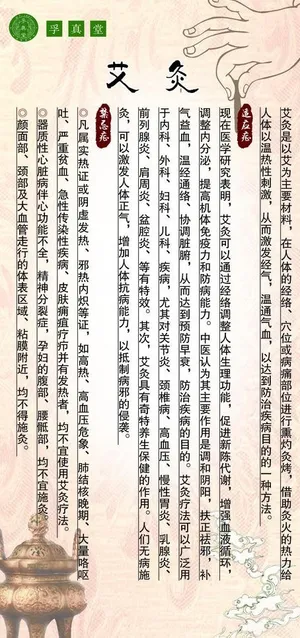 孚真堂
艾灸
艾灸是以艾为主要材料，在人体的经络、穴位或病痛部位进行熏灼灸烤，借助灸火的热力给
人体以温热性刺激，从而激发经气，温通气血，以达到防治疾病目的的一种方法。
适应症
现在医学研究表明，艾灸可以通过经络调整人体生理功能，促进新陈代谢，增强血液循环，
调整内分泌，提高机体免疫力和防病能力。中医认为其主要作用是调和阴阳，扶正祛邪，补
气益血，温经通络、协调脏腑，从而达到预防早衰、防治疾病的目的。艾灸疗法可以广泛用
于内科、外科、妇科、儿科、疾病，尤其对关节炎、颈椎病、高血压、慢性胃炎、乳腺炎、
前列腺炎、肩周炎、盆腔炎、等有特效。其次，艾灸具有奇特养生保健的作用。人们无病施
灸，可以激发人体正气，增加人体抗病能力，以抵制病邪的侵袭。
禁忌症
◎凡属实热证或阴虚发热、邪热内炽等证，如高热、高血压危象、肺结核晚期、大量咯呕
吐、严重贫血、急性传染性疾病、皮肤痈疽疗疖并有发热者，均不宜使用艾灸疗法。
◎器质性心脏病伴心功能不全，精神分裂症，孕妇的腹部、腰骶部，均不宜施灸。
◎颜面部、颈部及大血管走行的体表区域、粘膜附近，均不得施灸。